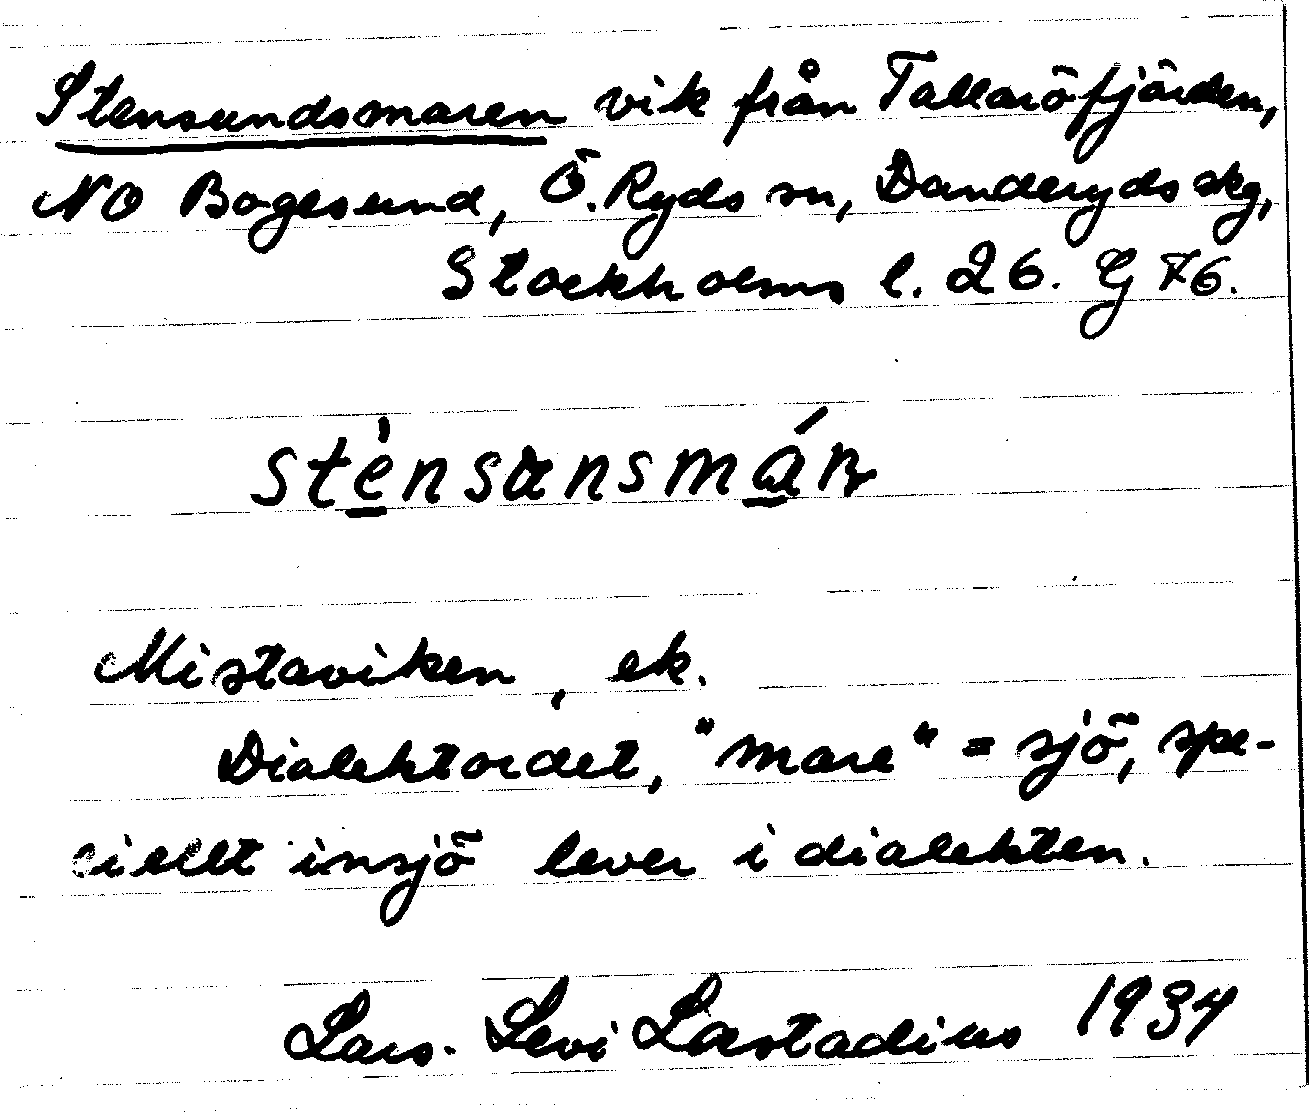 Stensundsmaren vik från Tallaröfjärden,
NO Bogesund, Ö. Ryds sn, Danderyds skg,
Stockholms l. 26. G 76.
stènsunsmán
Mistaviken, ek.
Dialektordet, "mare" = sjö, spe-
ciellt insjö lever i dialekten.
Lars-Levi Læstadius 1934